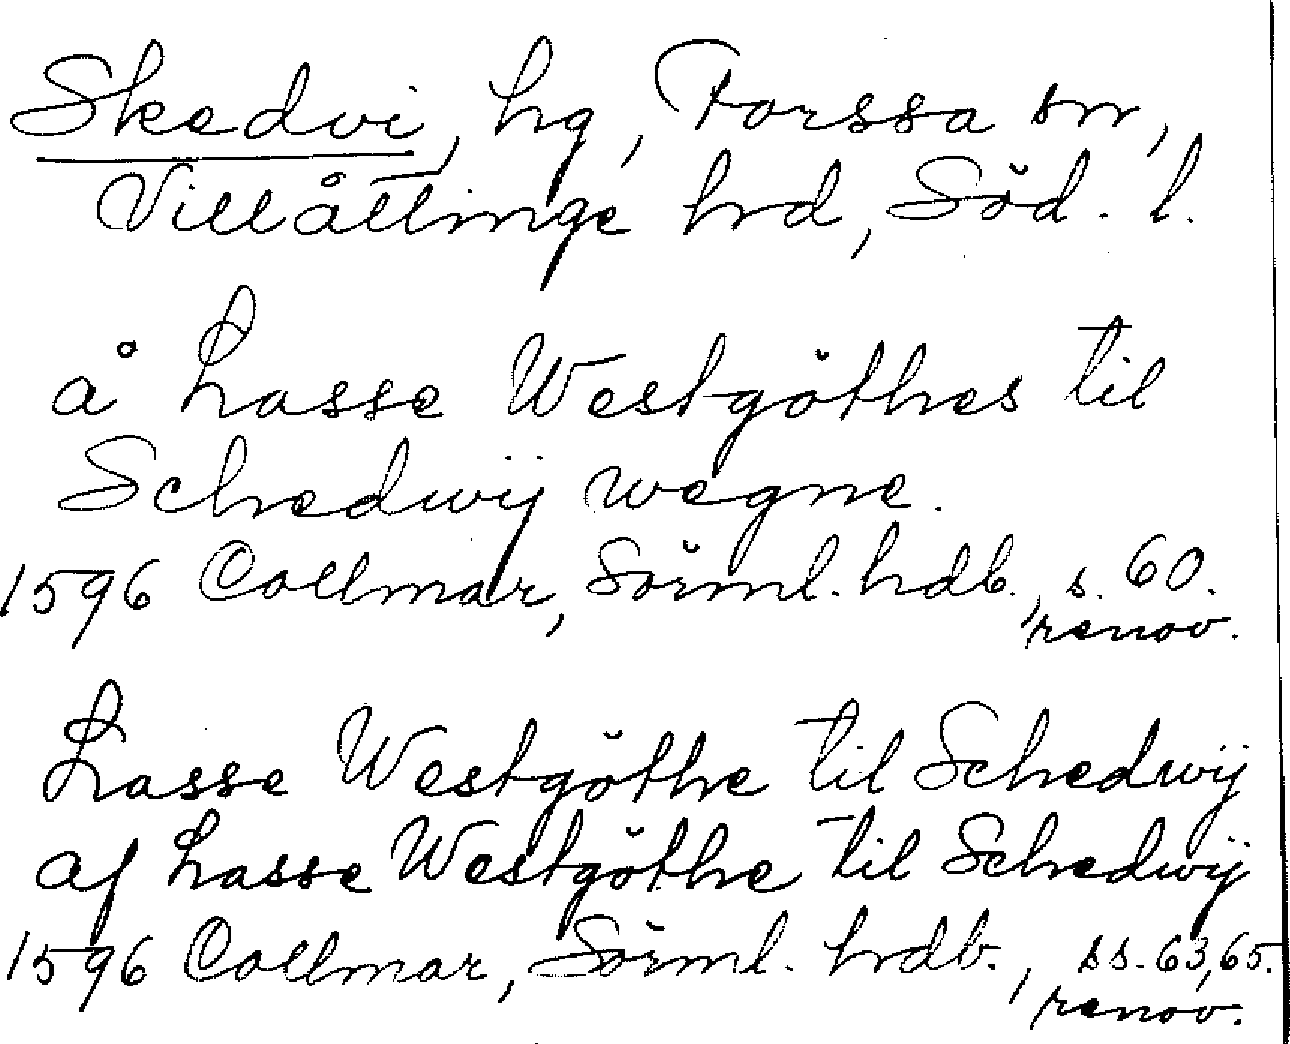 Skedvi, hg, Forssa sn,
Villåttinge hrd, Söd. l.
å Lasse Westgöthes til
Schedwÿ wegne.
1596 Collmar, Sörml. hdb., s. 60.
renov.
Lasse Westgöthe til Schedwÿ
af Lasse Westgöthe til Schedwÿ
1596 Collmar, Sörml. hrdb., ss. 63, 65.
renov.